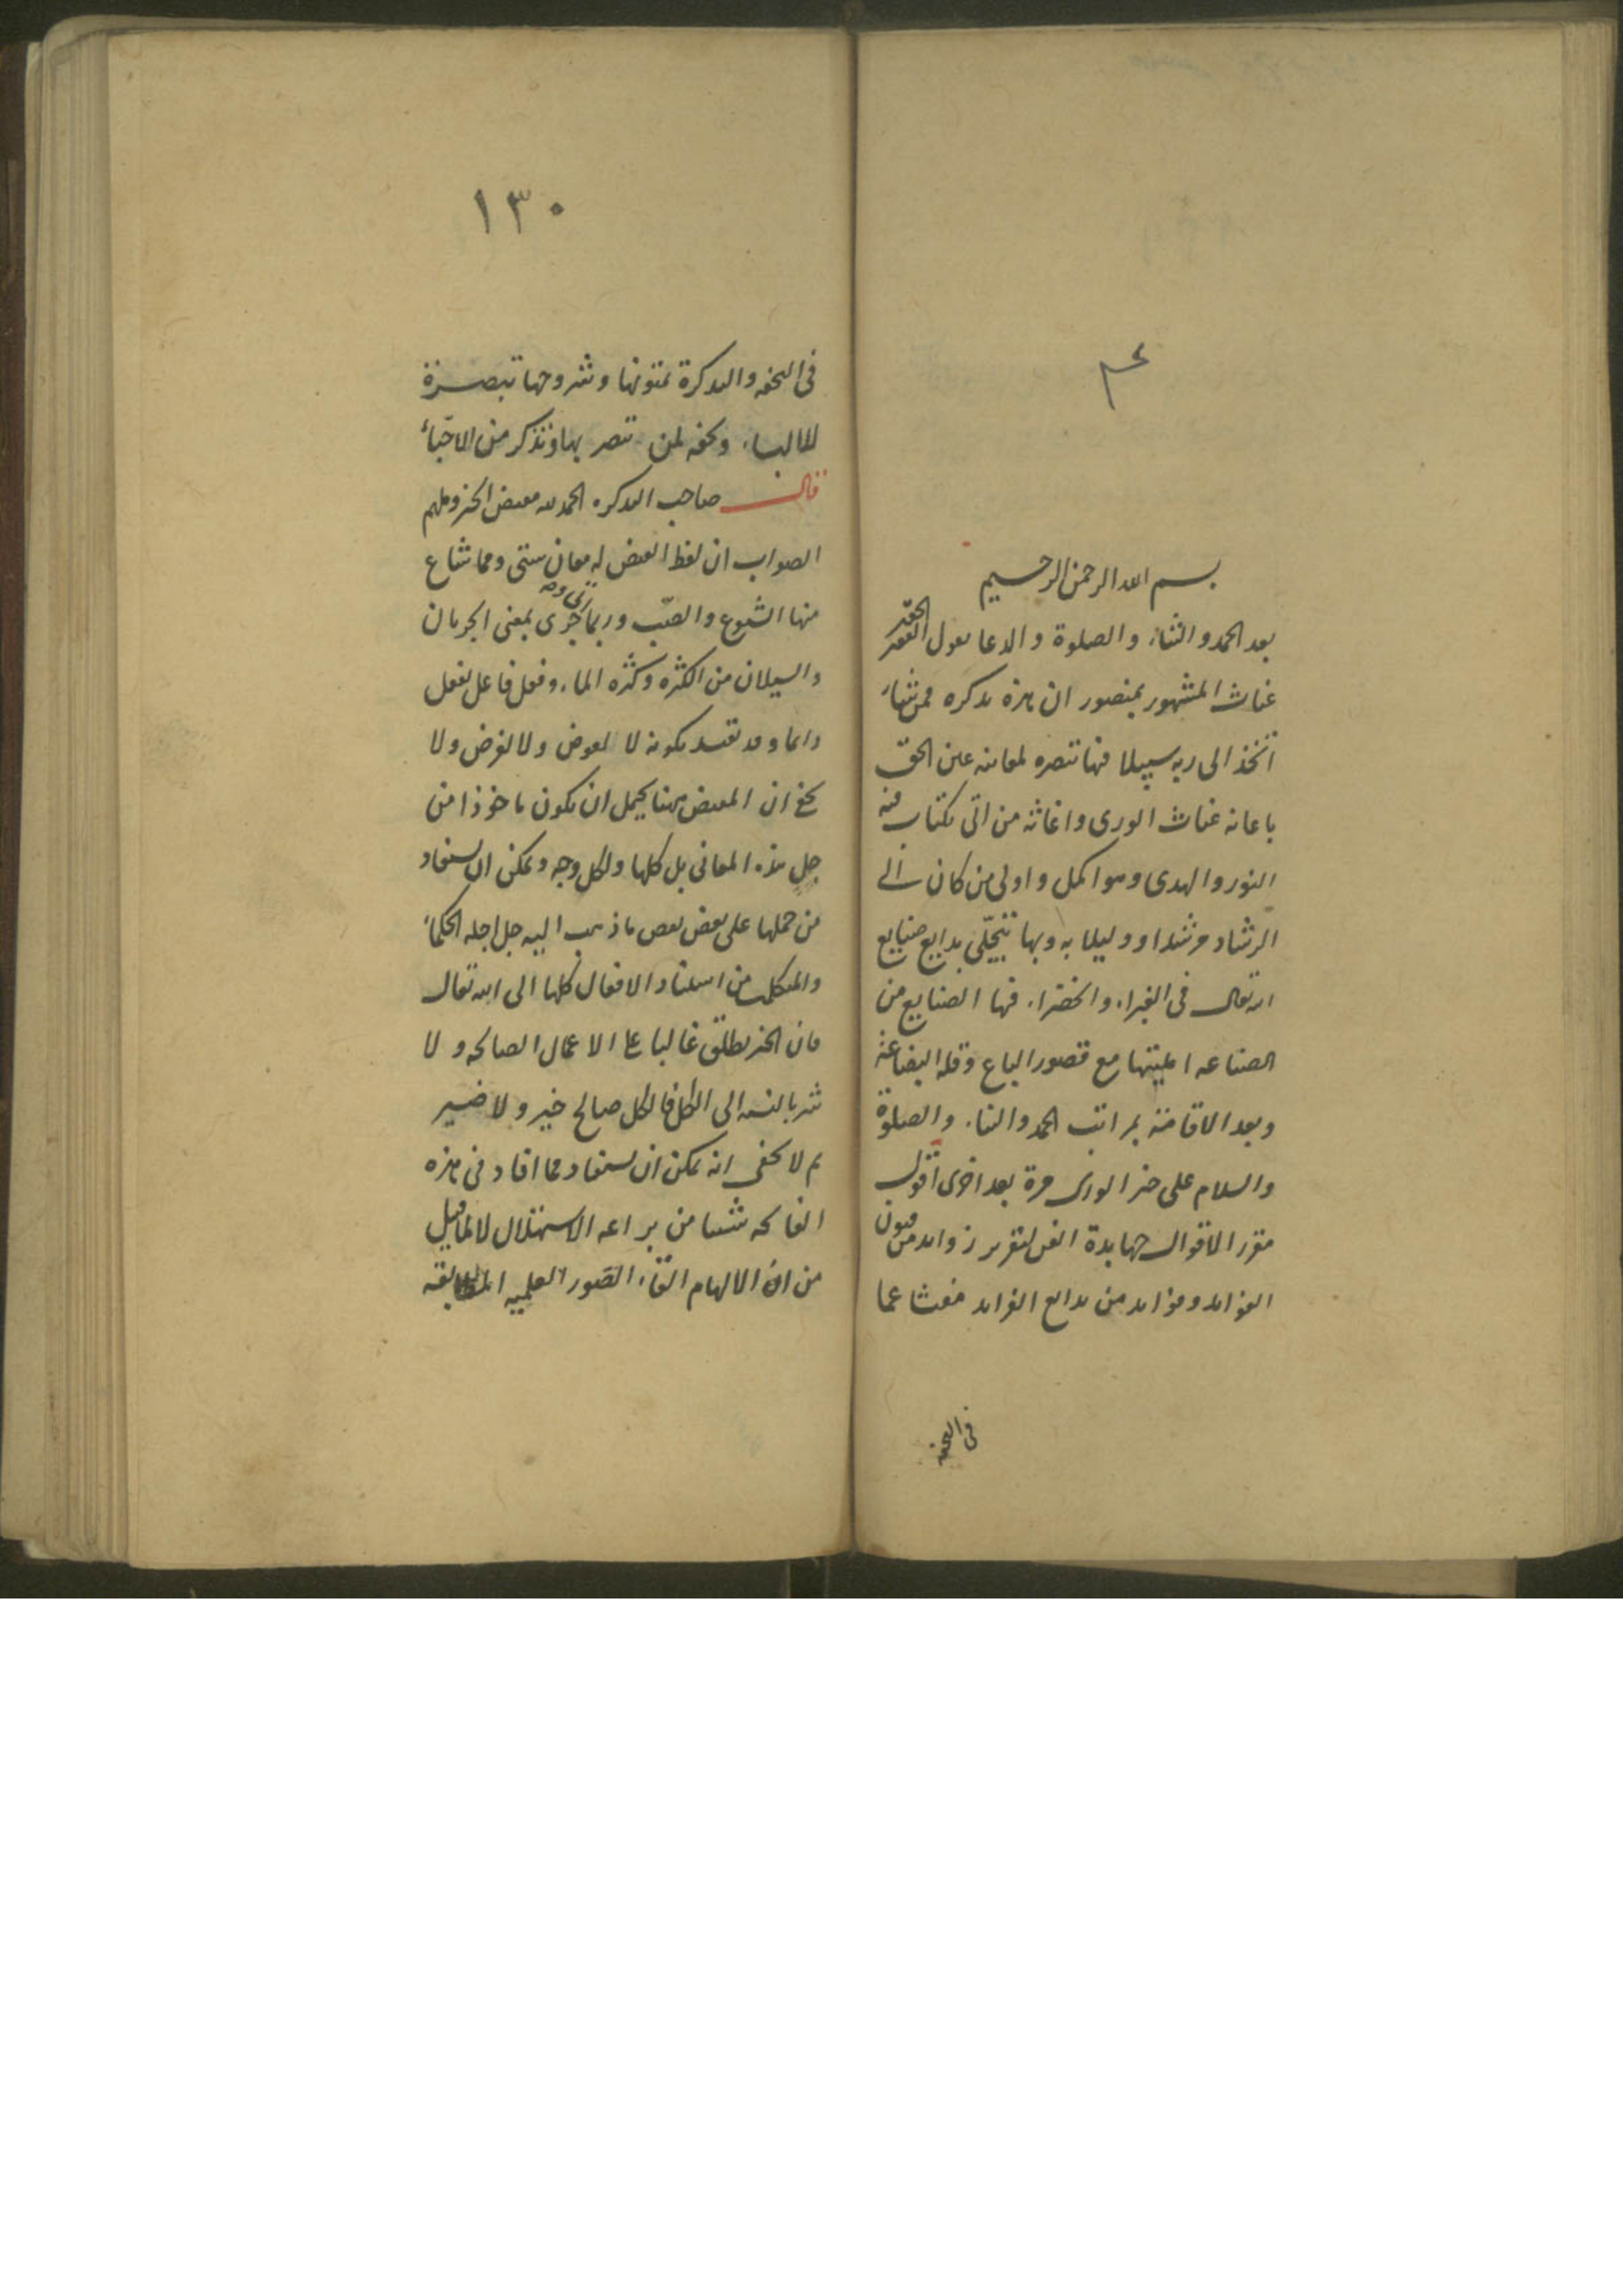 بسم الله الرحمن الرحيم
بعد الحمد والثناء والصلوة والدعا يقول الفقير الحقير
غياث المشهور بمنصور ان هذه تذكره فمن شاء
اتخذ الى ربه سبيلا فيها تبصره لمعاينه عين الحق
باعانه غياث الورى واغاثه من اتى بكتاب فيه
النور والهدى وهو اكمل واولى من كان الى
الرشاد مرشدا ودليلا به وبها تتجلى بدايع صنايع
الله تعالى فى الغبراء والخضراء فيها الصنايع من
الصناعه امليتها مع قصور الباع وقله البضاعة
وبعد الاقامة بمراتب الحمد والثناء والصلوة
والسلام على خير الورى مرة بعد اخرى اقول
مقرر الاقوال جهابدة الفن لتقرير زوايد من فنون
الفوايد وموايد من بدايع الفرايد مفتشا عما
فى التحفه
١٣٠
فى التحفه والتذكرة بمتونها وشروحها تبصرة
للالباء وتحفه لمن تبصر بها وتذكر من الاحباء
قال صاحب التذكره الحمد لله مفيض الخير وملهم
الصواب ان لفظ الفيض له معان شتى ومما شاع
منها الشيوع والصب وربما جرى بمعنى الجريان
والسيلان من الكثره وكثره الماء وفعل فاعل يفعل
دايما وقد تقيد بكونه لا لعوض ولا لغرض ولا
يخفى ان المفيض ههنا يحتمل ان يكون ماخوذا من
جل هذه المعانى بل كلها ولكل وجه ويمكن ان يستفاد
من حملها على بعض بعض ما ذهب اليه جل اجله الحكماء
والمتكلمين من اسناد الافعال كلها الى الله تعالى
فان الخير يطلق غالبا على الاعمال الصالحه ولا
شر بالنسبه الى الكل فالكل صالح خير ولا ضير
ثم لا يخفى انه يمكن ان يستفاد مما افاد فى هذه
الفاتحه شيئا من براعه الاستهلال لا لما قيل
من ان الالهام القاء الصور العلميه المطابقه